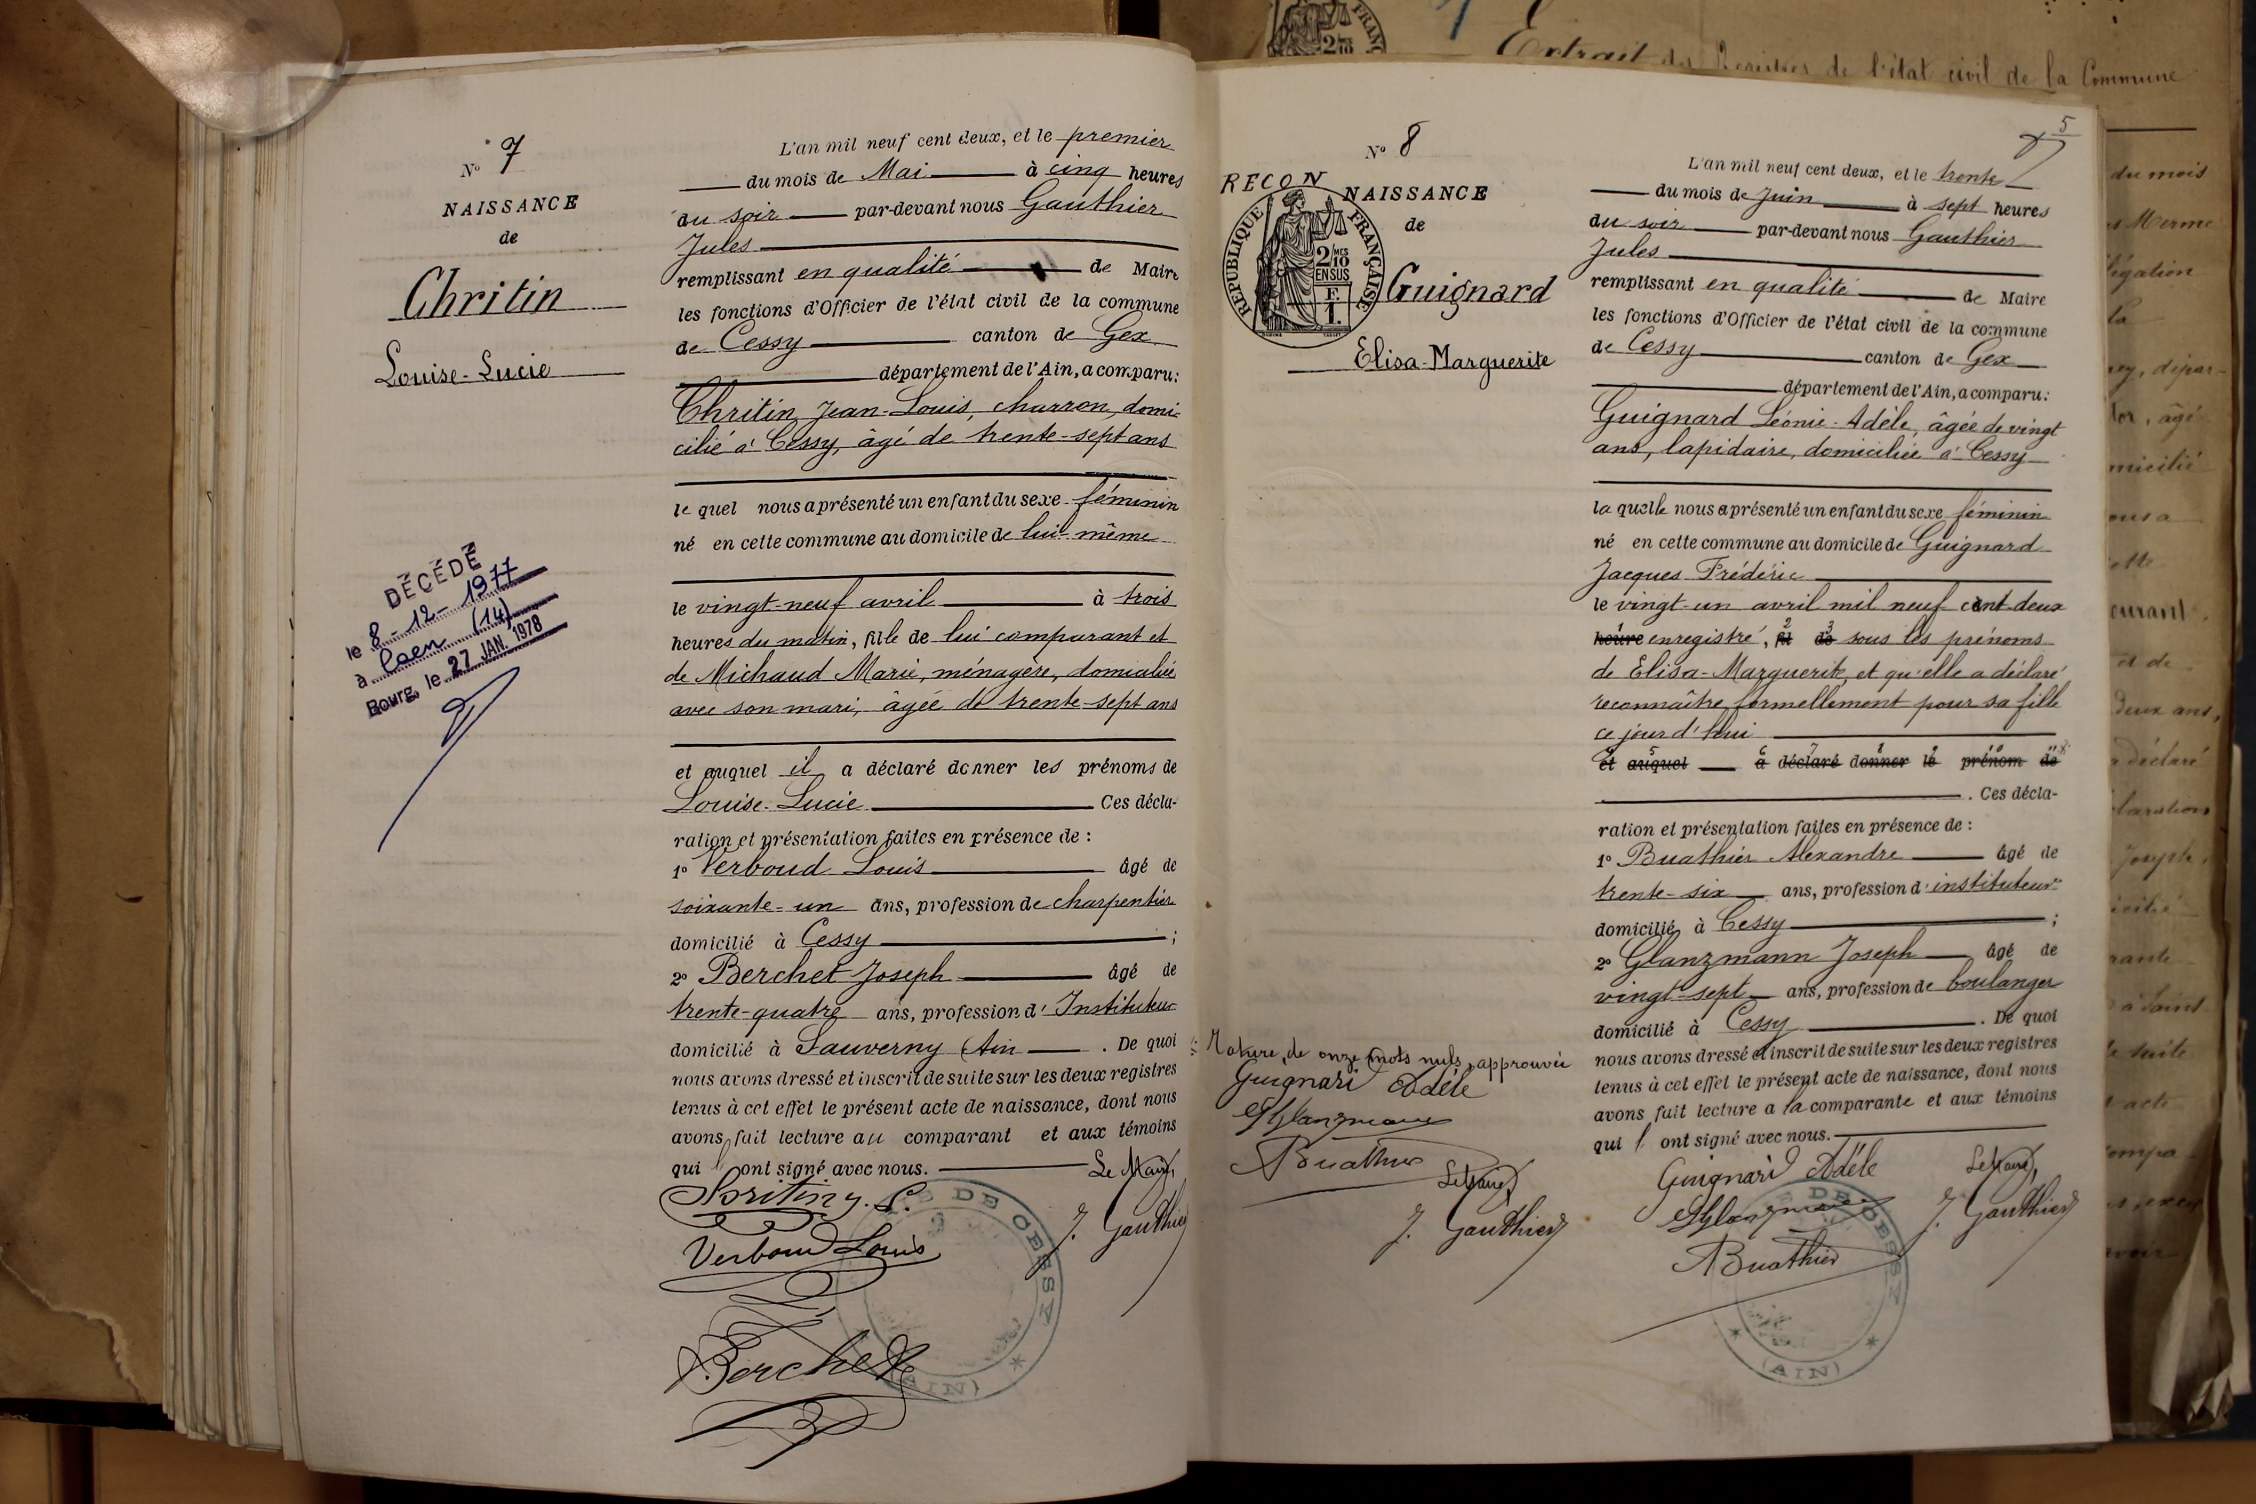 Nº 7
NAISSANCE
de
Chritin
Louise-Lucie
DÉCÉDÉ
le 8-12-1977
à Caen (14)
Bourg, le 27 JAN. 1978
L'an mil neuf cent deux, et le premier
du mois de Mai à cinq heures
du soir par-devant nous Gauthier
Jules
remplissant en qualité de Maire
les fonctions d'Officier de l'état civil de la commune
de Cessy canton de Gex
département de l'Ain, a comparu:
Chritin Jean-Louis, charron, domi-
cilié à Cessy, âgé de trente-sept ans
le quel nous a présenté un enfant du sexe féminin
né en cette commune au domicile de lui-même
le vingt-neuf avril à trois
heures du matin, fille de lui comparant et
de Michaud Marie, ménagère, domiciliée
avec son mari, âgée de trente-sept ans
et auquel il a déclaré donner les prénoms de
Louise-Lucie Ces décla-
ration et présentation faites en présence de :
1º Verboud Louis âgé de
soixante-un ans, profession de charpentier
domicilié à Cessy ;
2º Berchet Joseph âgé de
trente-quatre ans, profession d'Instituteur
domicilié à Sauverny (Ain . De quoi
nous avons dressé et inscrit de suite sur les deux registres
tenus à cet effet le présent acte de naissance, dont nous
avons fait lecture au comparant et aux témoins
qui ont signé avec nous. Le Maire,
J. Gauthier
Verboud Louis
Berchet
MAIRIE DE CESSY
(AIN)
5
Nº 8
RECON
NAISSANCE
de
RÉPUBLIQUE FRANÇAISE
2/10 MES
EN SUS
F.
1.
Guignard
Elisa-Marguerite
L'an mil neuf cent deux, et le trente
du mois de Juin à sept heures
du soir par-devant nous Gauthier
Jules
remplissant en qualité de Maire
les fonctions d'Officier de l'état civil de la commune
de Cessy canton de Gex
département de l'Ain, a comparu:
Guignard Léonie-Adèle, âgée de vingt
ans, lapidaire, domiciliée à Cessy
la quelle nous a présenté un enfant du sexe féminin
né en cette commune au domicile de Guignard
Jacques Frédéric
le vingt-un avril mil neuf cent-deux
heure enregistré, fil de sous les prénoms
de Elisa-Marguerite, et qu'elle a déclaré
reconnaître formellement pour sa fille
ce jourd'hui
et auquel a déclaré donner le prénom de
. Ces décla-
ration et présentation faites en présence de :
1º Buathier Alexandre âgé de
trente-six ans, profession d'instituteur
domicilié à Cessy ;
2º Glanzmann Joseph âgé de
vingt-sept ans, profession de boulanger
domicilié à Cessy . De quoi
nous avons dressé et inscrit de suite sur les deux registres
tenus à cet effet le présent acte de naissance, dont nous
avons fait lecture a la comparante et aux témoins
qui ont signé avec nous.
Rature de onze mots nuls, approuvée
Guignard Adèle
Glanzmann
Buathier
Le Maire,
J. Gauthier
Guignard Adèle
Le Maire,
Glanzmann
J. Gauthier
Buathier
MAIRIE DE CESSY
(AIN)
Extrait des Registres de l'état civil de la Commune
du mois